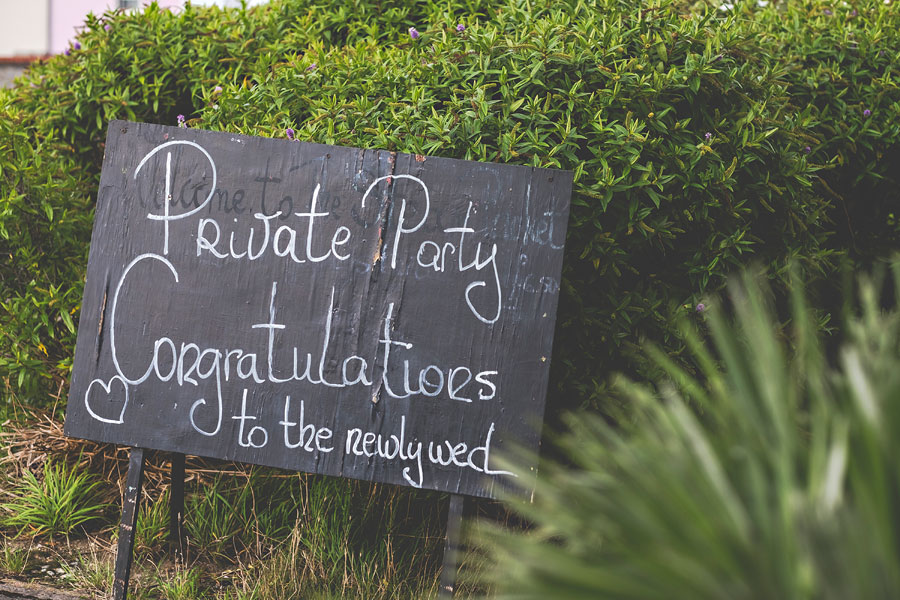 Private Party
Congratulations
to the newlywed